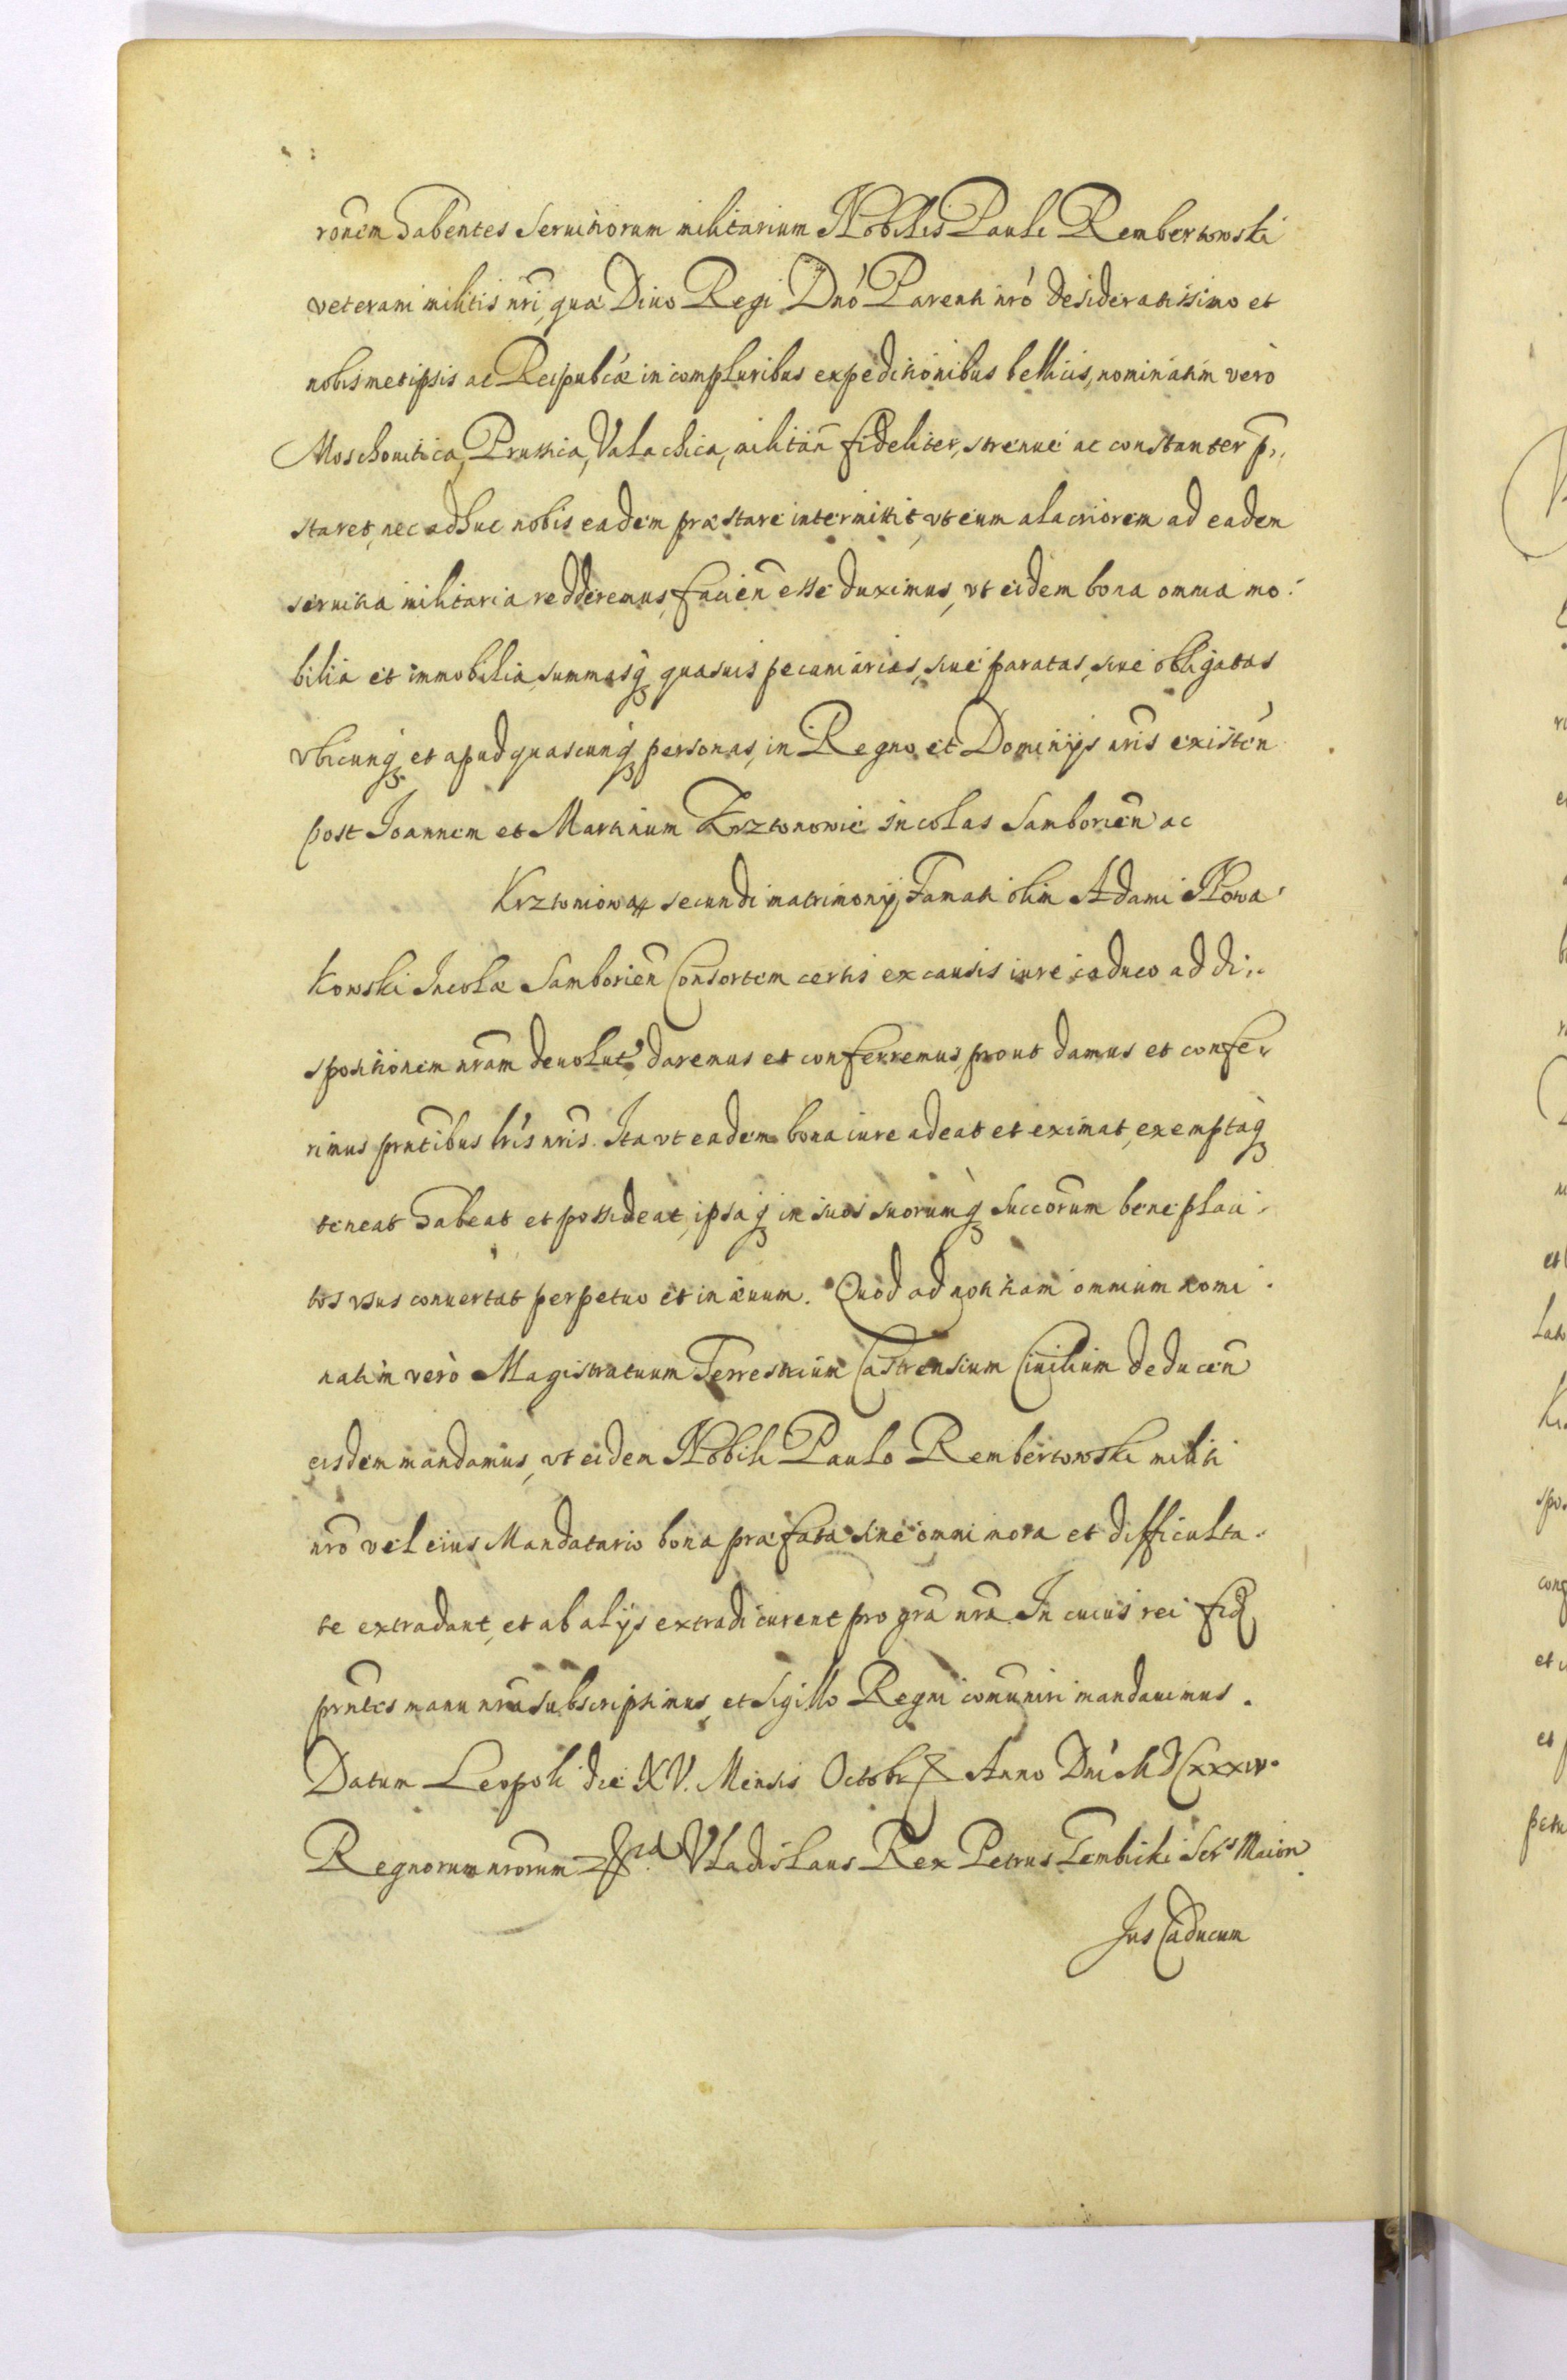 ronem habentes Seruitiorum militarium Nobilis Pauli Rembertowski
veterani militis nri, quæ Diuo Regi Dnó Parenti nró desideratissimo et
nobismetipsis ac Reipublcæ in compluribus expeditionibus bellicis, nominatim verò
Moschouitica, Prussica, Valachica, militan fideliter, strenuè ac constanter p,,
staret, nec adhuc nobis eadem præstare intermittit, vt eum alacriorem ad eadem
seruitia militaria redderemus, facien esse duximus, vt eidem bona omnia mo:
bilia et immobilia, summasq quasuis pecuniarias, siue paratas, siue obligatas
vbicunq et apud quascunq personas, in Regno et Dominijs nris existen
post Joannem et Martinum Krztonowic incolas Samborien ac
Krztoniowa secundi matrimonij Famati olim Adami Nowa-
kowski Incolæ Samborien Consortem certis ex causis iure caduco ad di,,
spositionem nram deuolut, daremus et conferremus, prout damus et confe,
rimus prntibus lris nris. Ita vt eadem bona iure adeat et eximat, exemptaq
teneat habeat et possideat, ipsaq in suos suorumq Succorum beneplaci-
tos vsus conuertat perpetuo et in æuum. Quod ad notitiam omnium nomi-
natim verò Magistratuum Terrestrium Castrensium Ciuilium deducen
eisdem mandamus, vt eidem Nobili Paulo Rembertowski militi
nro vel eius Mandatario bona præfata sine omni mora et difficulta-
te extradant, et ab alijs extradi curent pro gra nra. In cuius rei fid
prntes manu nra subscripsimus, et Sigillo Regni comuniri mandauimus.
Datum Leopoli die XV. Mensis Octobr Anno Dni MDCxxxiv.
Regnorum nrorum Vladislaus Rex Petrus Gembicki Scrs Maior
Jus Caducum